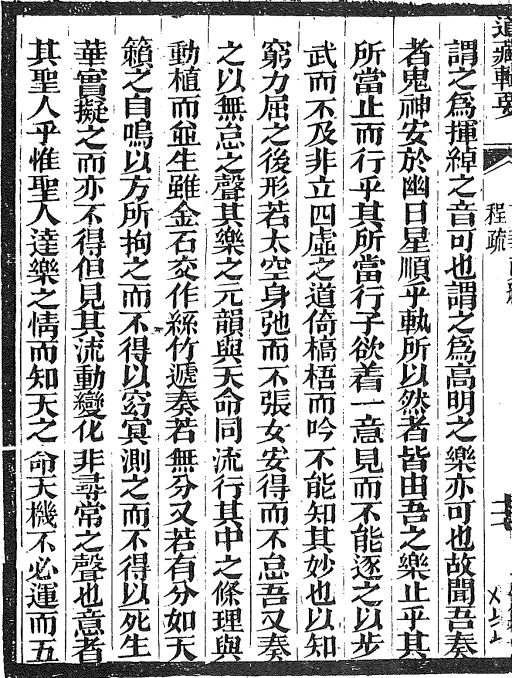 道藏輯要
程疏
謂之爲揮綽之音可也謂之爲高明之樂亦可也故聞吾奏
者鬼神安於幽日星順乎軌所以然者皆由吾之樂止乎其
所當止而行乎其所當行子欲着一意見而不能逐之以步
武而不及非立四虛之道倚槁梧而吟不能知其妙也以知
窮力屈之後形若太空身弛而不張女安得而不怠吾又奏
之以無怠之聲其樂之元韻與天命同流行其中之條理與
動植而並生雖金石交作絲竹遞奏若無分又若有分如天
籟之自鳴以方所拘之而不得以窈冥測之而不得以死生
華實擬之而亦不得但見其流動變化非尋常之聲也意者
其聖人乎惟聖人達樂之情而知天之命天機不必運而五